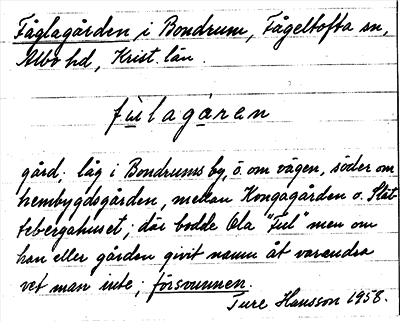 Fåglagården, i Bondrum, Fågeltofta sn,
Albo hd, Krist. län.
fùlagáren
gård; låg i Bondrums by, ö. om vägen, söder om
hembygdsgården, mellan Kongagården o. Stät-
tebergahuset; där bodde Ola "Ful" men om
han eller gården givit namn åt varandra
vet man inte; försvunnen.
Ture Hansson 1958.